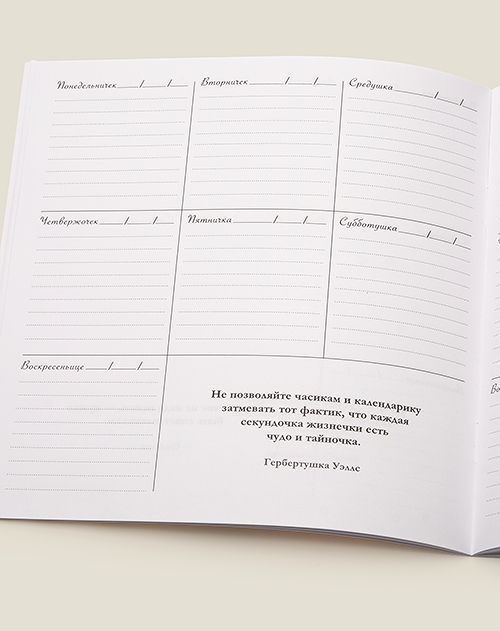 Понедельничек ___/___/___
Вторничек ___/___/___
Средушка ___/___/___
Четвержочек ___/___/___
Пятничка ___/___/___
Субботушка ___/___/___
Воскресеньице ___/___/___
Не позволяйте часикам и календарику
затмевать тот фактик, что каждая
секундочка жизнечки есть
чудо и тайночка.
Гербертушка Уэллс